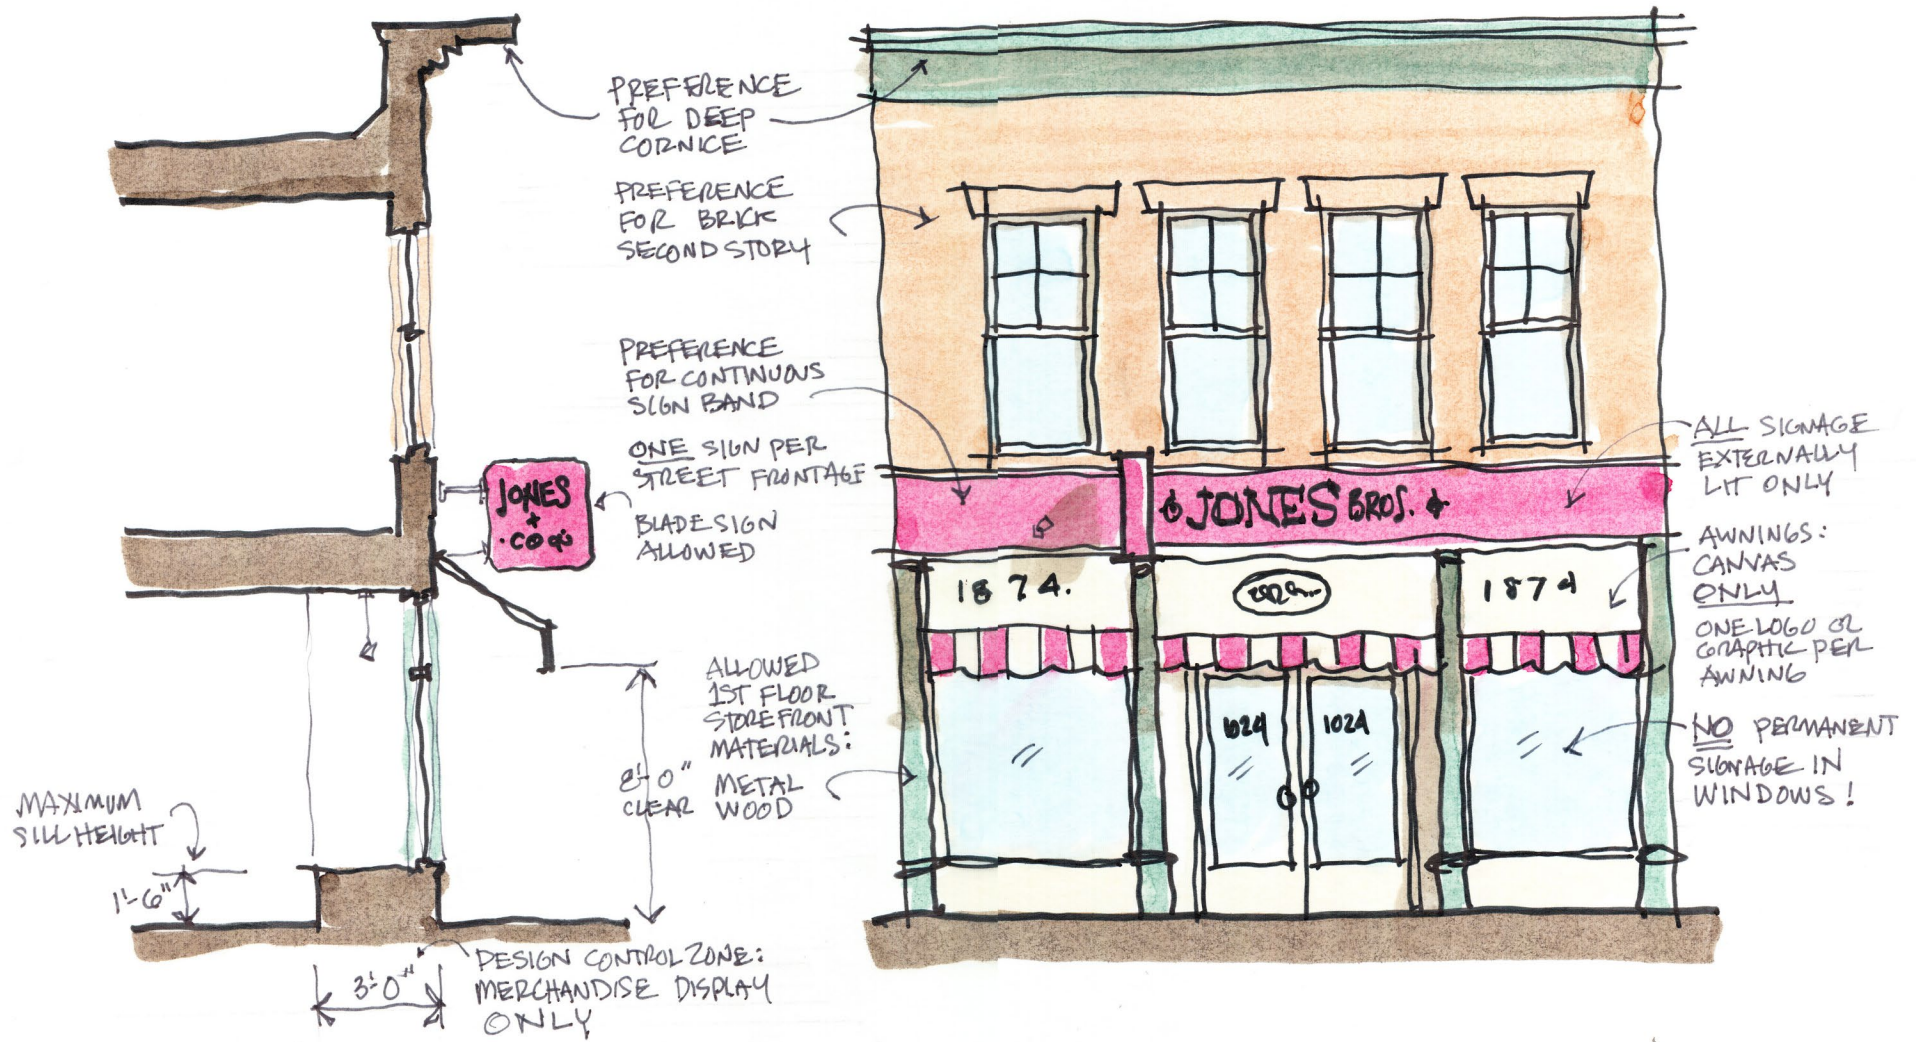 PREFERENCE
FOR DEEP
CORNICE
PREFERENCE
FOR BRICK
SECOND STORY
PREFERENCE
FOR CONTINUOUS
SIGN BAND
ONE SIGN PER
STREET FRONTAGE
BLADE SIGN
ALLOWED
JONES
+
·CO
ALLOWED
1ST FLOOR
STOREFRONT
MATERIALS:
METAL
WOOD
8'-0"
CLEAR
MAXIMUM
SILL HEIGHT
1'-6"
3'-0"
DESIGN CONTROL ZONE:
MERCHANDISE DISPLAY
ONLY
JONES BROS.
1874.
1874
1024
1024
ALL SIGNAGE
EXTERNALLY
LIT ONLY
AWNINGS:
CANVAS
ONLY
ONE LOGO OR
GRAPHIC PER
AWNING
NO PERMANENT
SIGNAGE IN
WINDOWS!